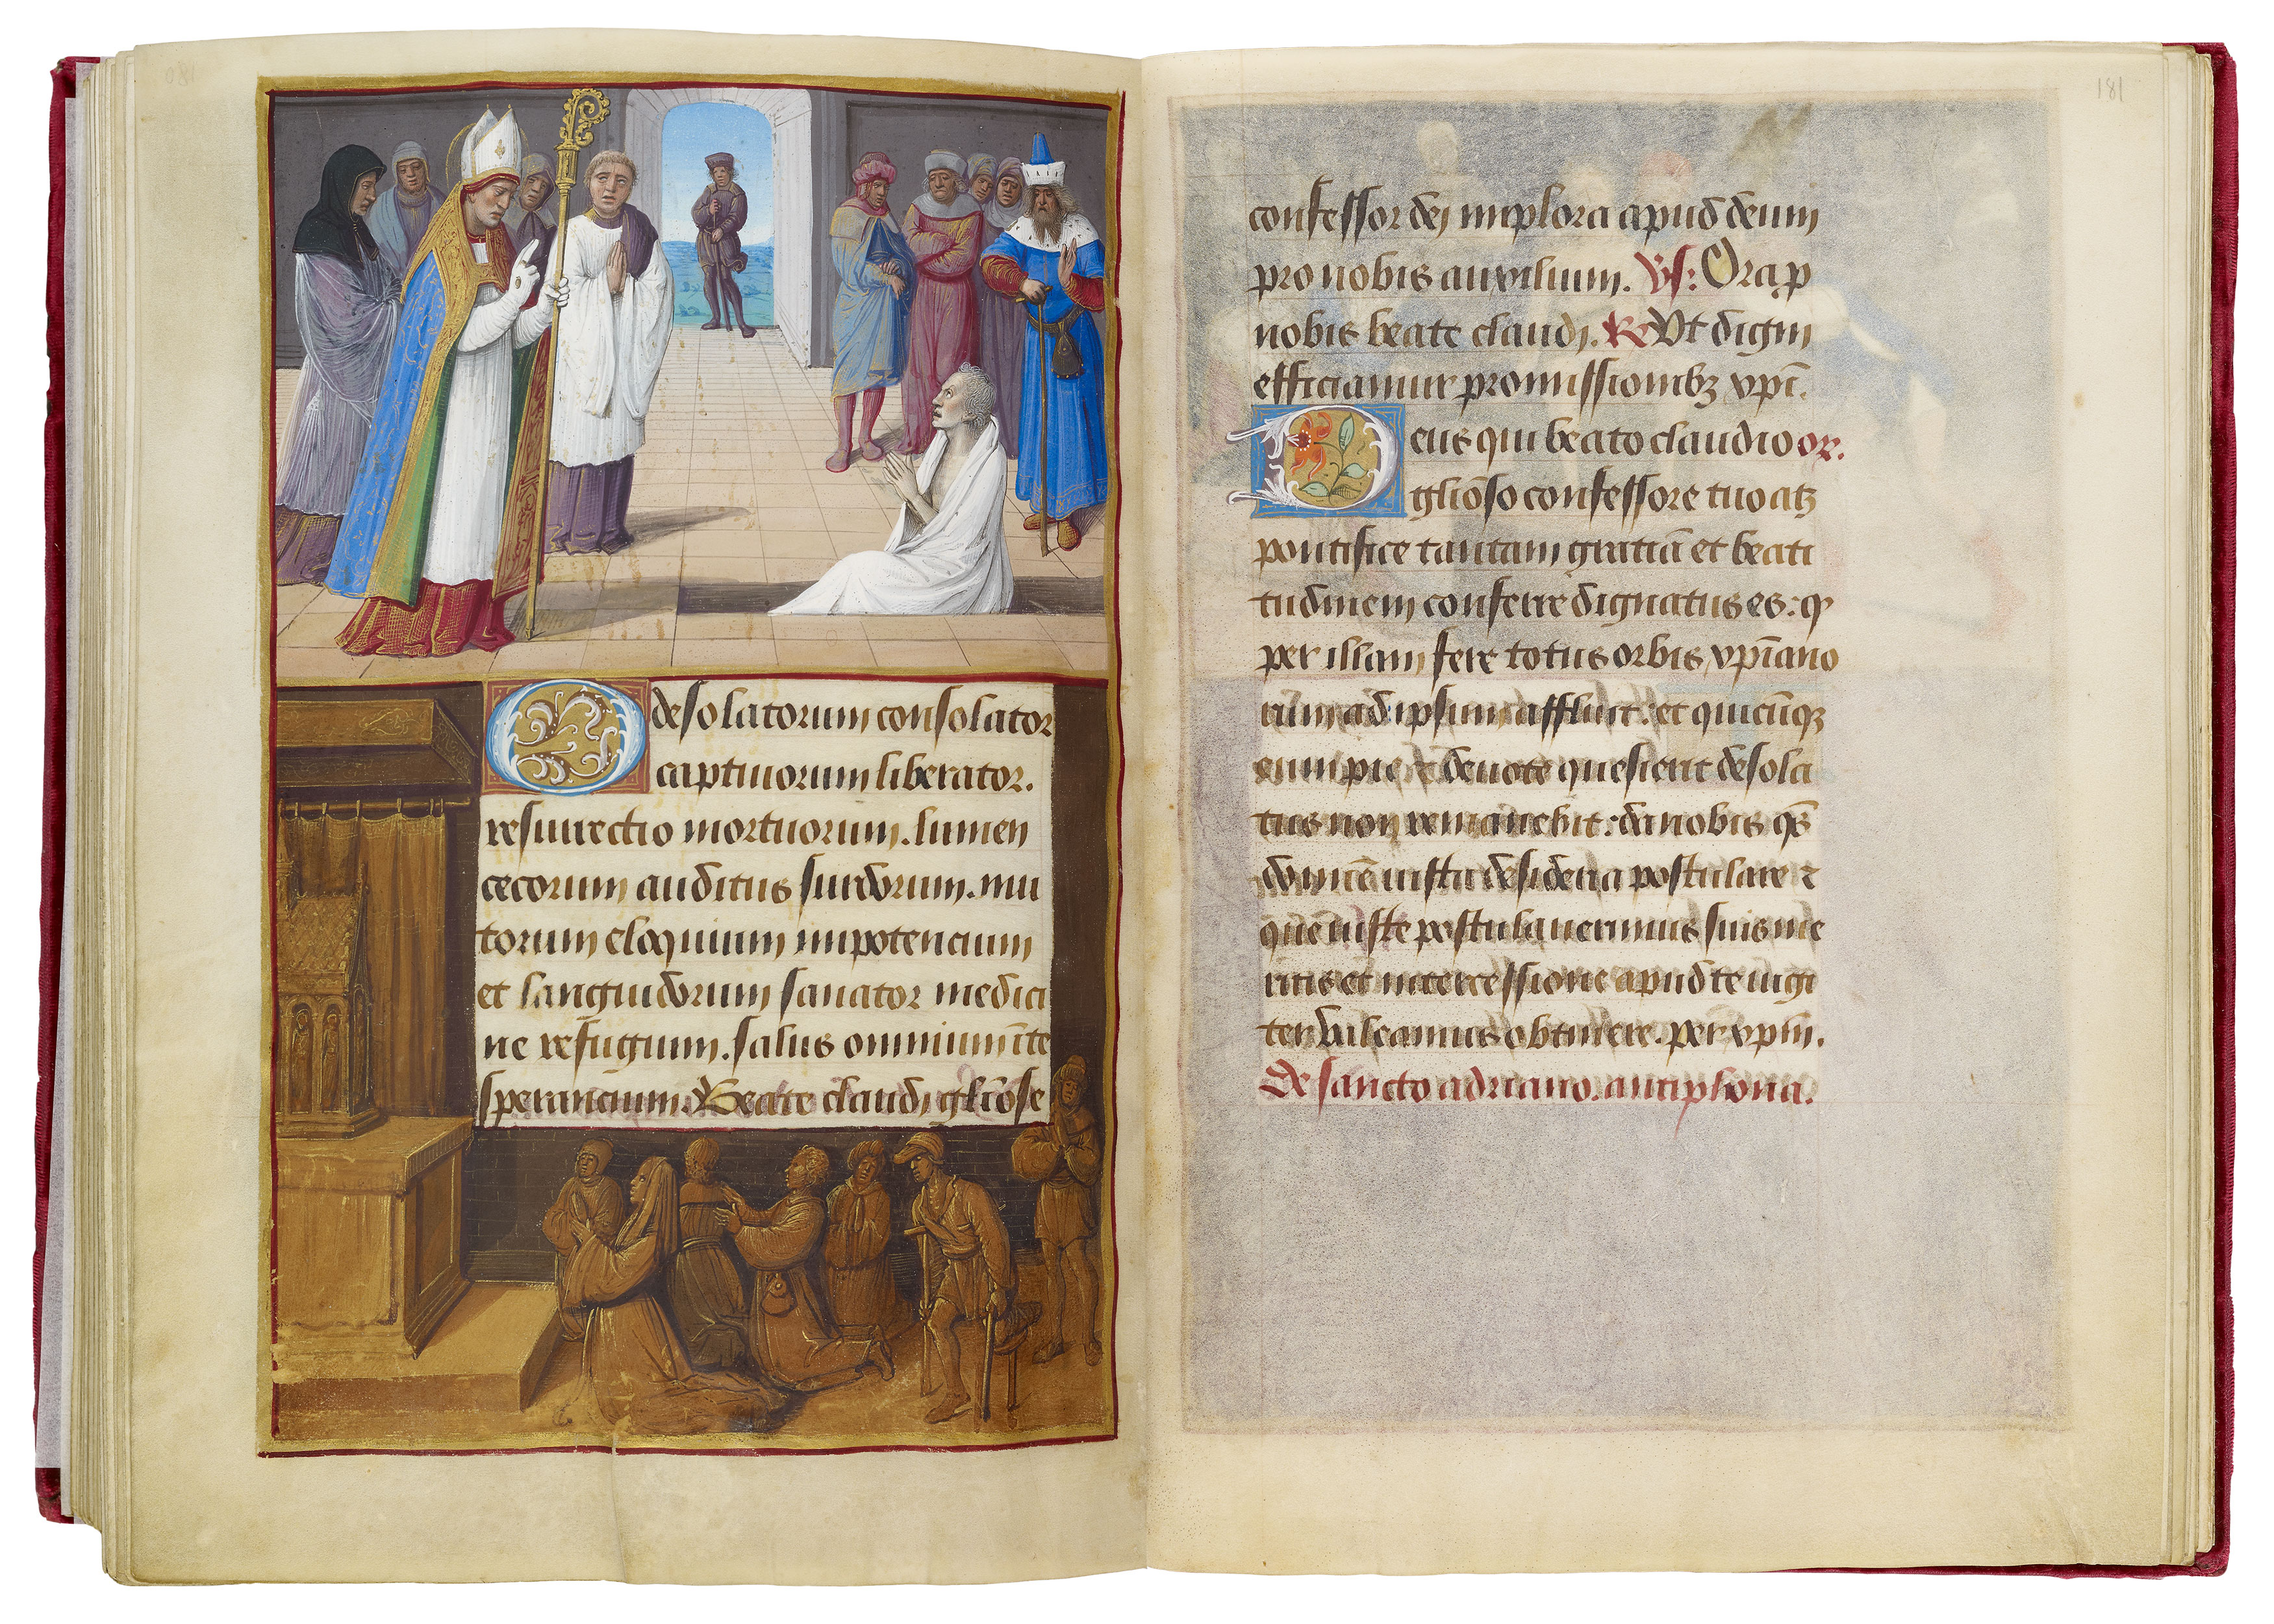 O desolatorum consolator
captivorum liberator.
resurrectio mortuorum. lumen
cecorum auditus surdorum. mu
torum eloquium impotencium
et languidorum sanator medici
ne refugium. salus omnium ī te
sperancium. Beate claudi gliōse
181
confessor dei implora apud deum
pro nobis auxilium. Vs: Ora p
nobis beate claudi. R Vt digni
efficiamur promissionibȝ xpī.
Deus qui beato claudio or.
gliōso confessore tuo atȝ
pontifice tantam gratiā et beati
tudinem conferre dignatus es: q
per illam fere totus orbis xpīano
rum ad ipsum affluit: et quicūqȝ
eum pie ⁊ devote quesierit desola
tus non remanebit: da nobis qs̄
domīe iusta desideria postulare ⁊
que iuste postulaverimus suis me
ritis et intercessione apud te iugi
ter valeamus obtinere. per xpm.
De sancto adriano. antiphona.